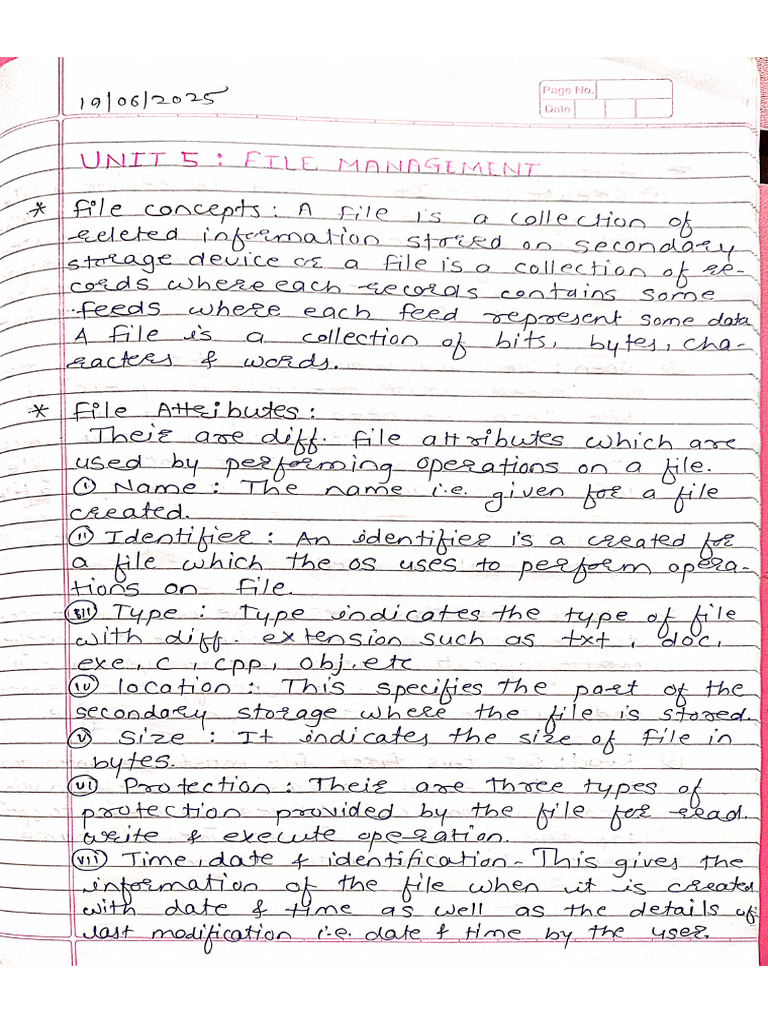 19/06/2025
Page No.
Date
UNIT 5 : FILE MANAGEMENT
* File concepts : A file is a collection of
releted information stored on secondary
storage device or a file is a collection of re-
cords where each records contains some
feeds where each feed represent some data
A file is a collection of bits, bytes, cha-
racters & words.
* File Attributes :
Their are diff. file attributes which are
used by performing operations on a file.
(i) Name : The name i.e. given for a file
created.
(ii) Identifier : An identifier is a created for
a file which the os uses to perform opera-
tions on file.
(iii) Type : Type indicates the type of file
with diff. extension such as txt, doc,
exe, c, cpp, obj, etc
(iv) location : This specifies the part of the
secondary storage where the file is stored.
(v) Size : It indicates the size of file in
bytes.
(vi) Protection : Their are three types of
protection provided by the file for read.
write & execute operation.
(vii) Time, date & identification - This gives the
information of the file when it is created
with date & time as well as the details of
last modification i.e. date & time by the user.